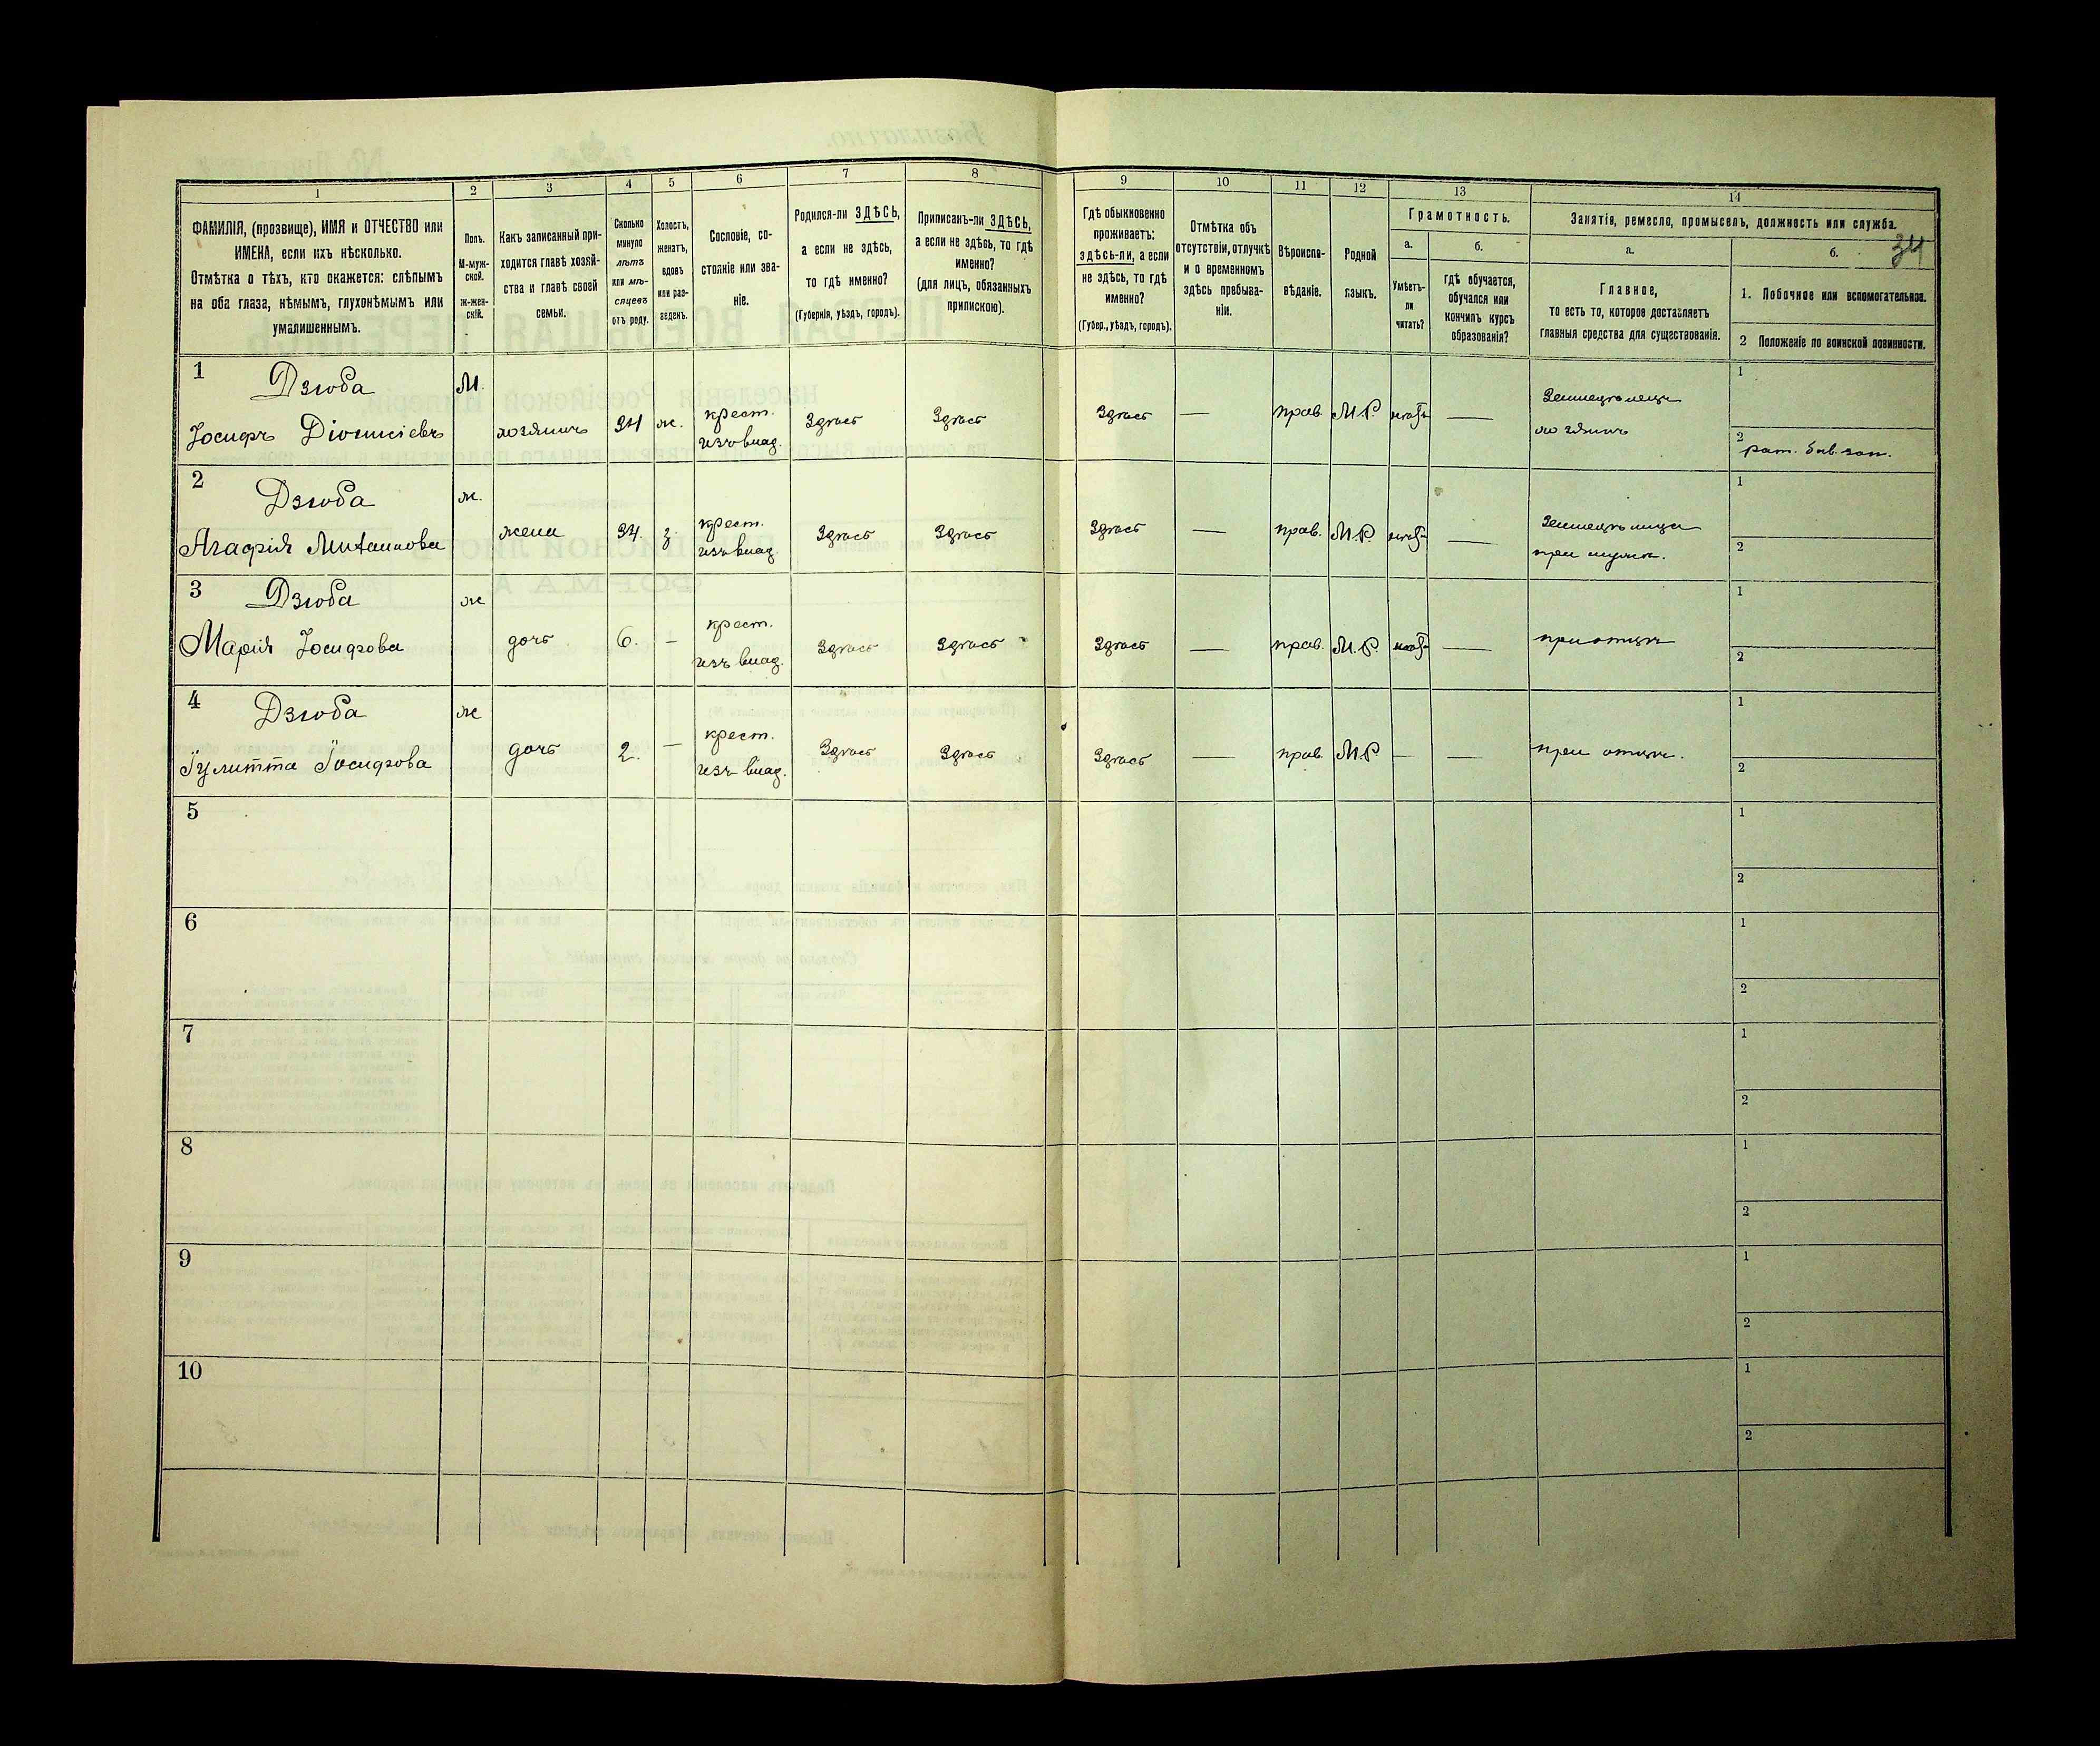 34
1
2
3
4
5
6
7
8
9
10
11
12
13
14
ФАМИЛІЯ, (прозвище), ИМЯ и ОТЧЕСТВО или
ИМЕНА, если ихъ нѣсколько.
Отмѣтка о тѣхъ, кто окажется: слѣпымъ
на оба глаза, нѣмымъ, глухонѣмымъ или
умалишеннымъ.
Полъ.
М-муж-
ской.
ж-жен-
скій.
Какъ записанный при-
ходится главѣ хозяй-
ства и главѣ своей
семьи.
Сколько
минуло
лѣтъ
или мѣ-
сяцевъ
отъ роду.
Холостъ,
женатъ,
вдовъ
или раз-
веденъ.
Сословіе, со-
стояніе или зва-
ніе.
Родился-ли ЗДѢСЬ,
а если не здѣсь,
то гдѣ именно?
(Губернія, уѣздъ, городъ).
Приписанъ-ли ЗДѢСЬ,
а если не здѣсь, то гдѣ
именно?
(для лицъ, обязанныхъ
припискою).
Гдѣ обыкновенно
проживаетъ:
здѣсь-ли, а если
не здѣсь, то гдѣ
именно?
(Губер., уѣздъ, городъ).
Отмѣтка объ
отсутствіи, отлучкѣ
и о временномъ
здѣсь пребыва-
ніи.
Вѣроиспо-
вѣданіе.
Родной
языкъ.
Грамотность.
а.
Умѣетъ-
ли
читать?
б.
гдѣ обучается,
обучался или
кончилъ курсъ
образованія?
Занятія, ремесло, промыселъ, должность или служба.
а.
Главное,
то есть то, которое доставляетъ
главныя средства для существованія.
б.
1. Побочное или вспомогательное.
2 Положеніе по воинской повинности.
1 Дзюба
Іосифъ Діонисіевъ
М.
хозяинъ
34
ж.
крест.
изъ влад.
Здѣсь
Здѣсь
Здѣсь
—
прав.
М.Р.
—
Земледѣлецъ
хозяинъ
1
2
рат.
зап.
2 Дзюба
Агафія
ж.
жена
34.
з.
крест.
изъ влад
Здѣсь
Здѣсь
Здѣсь
—
прав.
М.Р.
—
при мужѣ.
1
2
3 Дзюба
Марія Іосифова
ж
дочь
6.
—
крест.
изъ влад.
Здѣсь
Здѣсь
Здѣсь
—
прав.
М.Р.
—
при отцѣ
1
2
4 Дзюба
Іулитта Іосифова
ж
дочь
2.
—
крест.
изъ влад.
Здѣсь
Здѣсь
Здѣсь
—
прав.
М.Р
—
—
при отцѣ.
1
2
5
1
2
6
1
2
7
1
2
8
1
2
9
1
2
10
1
2